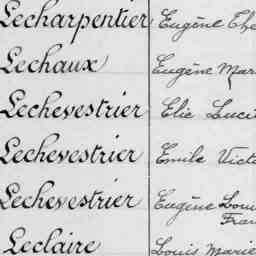 Lecharpentier Eugène
Lechaux Eugène Mar
Lechevestrier Elie Luci
Lechevestrier Emile Victo
Lechevestrier Eugène Loui
Fran
Leclaire Louis Marie